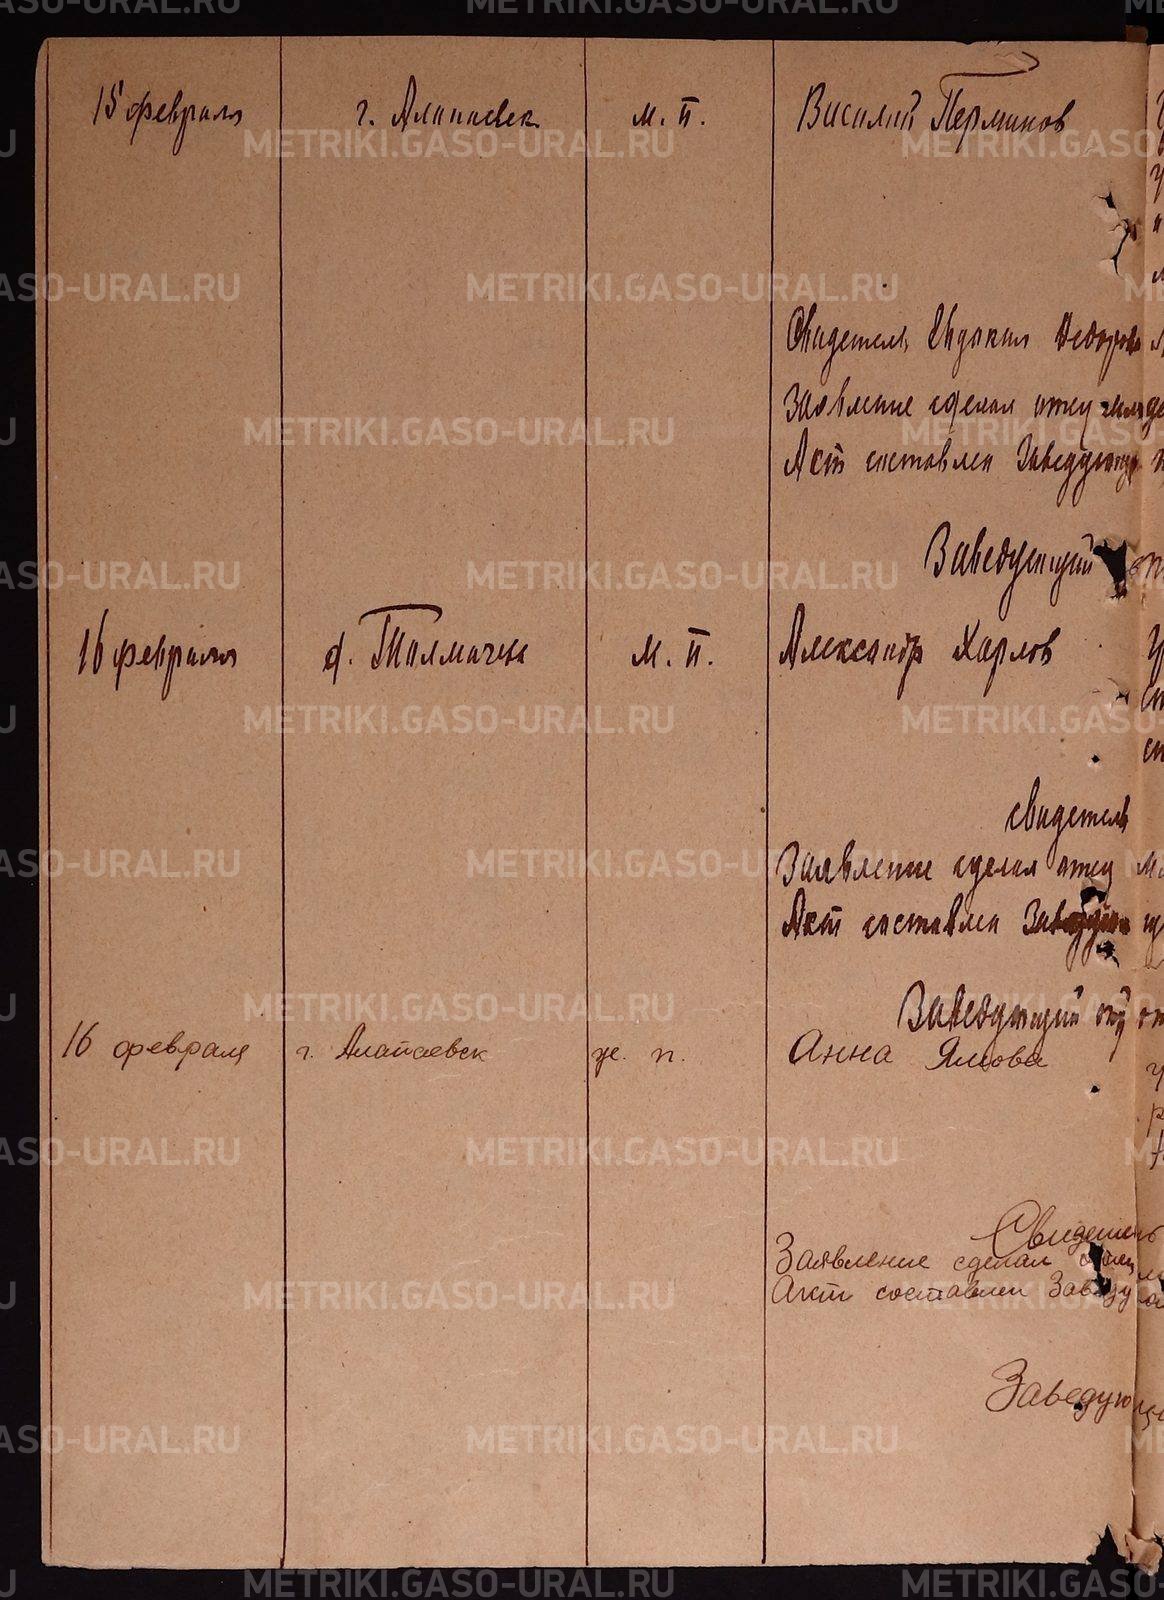 METRIKI.GASO-URAL.RU
15 февраля г. Алапаевск м. п. Василий Перминов
Свидетель, Евдокия Федоров
Заявление сделал отец
Акт составлен Заведующ
Заведующий
16 февраля д. Толмачева м. п. Александр Харлов
свидетель
Заявление сделал отец
Акт составлен Заведую
Заведующий
16 февраля г. Алапаевск ж. п. Анна Ямова
Свидетель
Заявление сделал отец
Акт составлен Заведу
Заведующ